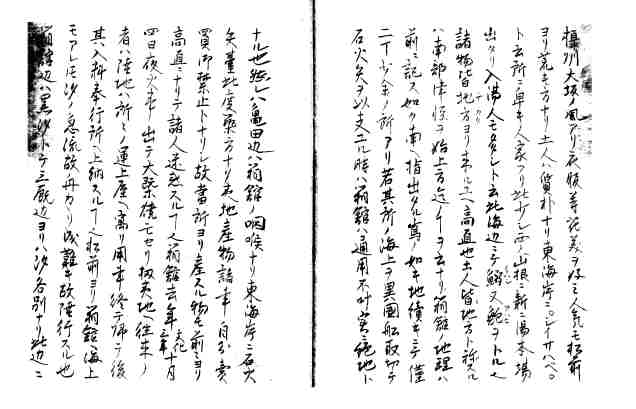 摂州大坂ノ風アリ衣服等花美ヲ好ミ人気モ松前
ヨリ荒キ方ナリ土人ハ質朴ナリ東海岸ニ
ト云所ニ早キ人家アリ此少シ西ノ山根ニ新ニ湯本場
出タリ入湯人モタダシト云此海辺ニテ鰯又鮑ヲトル
諸物皆地方ヨリ来ルユヘ高直也土人皆地方ト称スル
ハ南部津軽ヲ始上方迄イーヲ云ナリ箱館ノ地理ハ
前ニ記ス如ク南ヘ指出タル寫ノ如キ地続キニテ僅
二丁少余ノ所アリ若其所ノ海上ヲ異國船取切テ
石火矢ヲ以支ユル時ハ箱館ハ通用不叶実ニ絶地ト
ナル也然レハ亀田辺ハ箱館ノ咽喉ナリ東海岸ニ石火
矢臺此度築方ナリ夷地産物諸事一月引賣
買御禁止トナリシ故當所ヨリ産スル物モ前ニヨリ
高直ニナリテ諸人迷惑スルーヘ箱館去年十月
四日夜火事出テ大概焼モセリ扨夷地ヘ往来ノ
者ハ陸地ハ所ミノ運上屋ヘ寓リ用事終テ帰テ後
其入料奉行所ヘ上納スルーヘ松前ヨリ箱館ヘ海上
モアレ氏汐ノ急流故舟カヽリ成難キ故陸行スル也
箱館辺ハ黒汐ニテ三厩辺ヨリハ汐各別ナリ此辺ニ